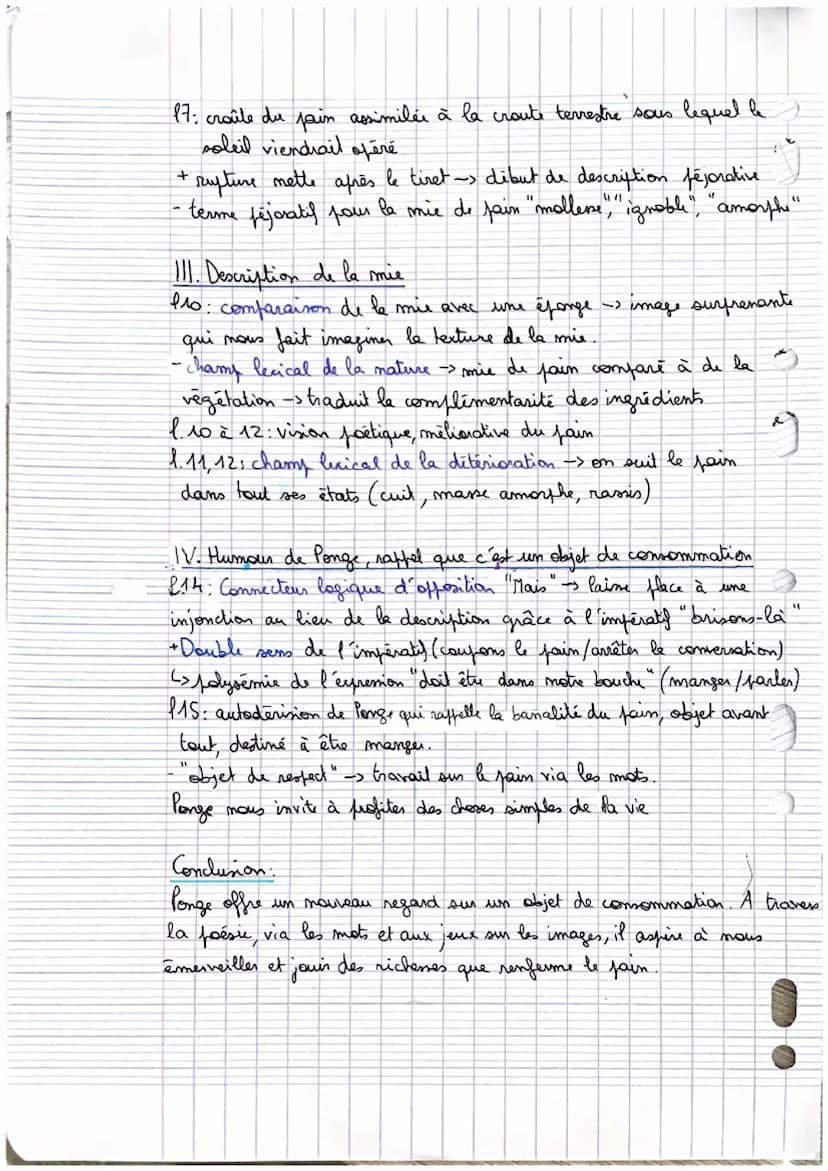 l7: croûte du pain assimilée à la croute terrestre sous lequel le
soleil viendrait opéré
+ rupture nette après le tiret -> début de description péjorative
- terme péjoratif pour la mie de pain "mollesse", "ignoble", "amorphe"
III. Description de la mie
l10: comparaison de la mie avec une éponge -> image surprenante
qui nous fait imaginer la texture de la mie.
- champ lexical de la nature -> mie de pain comparé à de la
végétation -> traduit la complémentarité des ingrédients
l.10 à 12: vision poétique, méliorative du pain
l.11,12: champ lexical de la détérioration -> on suit le pain
dans tout ses états (cuit, masse amorphe, rassis)
IV. Humour de Ponge, rappel que c'est un objet de consommation
l14: Connecteur logique d'opposition "Mais" -> laisse place à une
injonction au lieu de la description grâce à l'impératif "brisons-là"
+ Double sens de l'impératif (coupons le pain/arrêter la conversation)
↳ polysémie de l'expression "doit être dans notre bouche" (manger/parler)
l15: autodérision de Ponge qui rappelle la banalité du pain, objet avant
tout, destiné à être manger.
- "objet de respect" -> travail sur le pain via les mots.
Ponge nous invite à profiter des choses simples de la vie
Conclusion:
Ponge offre un nouveau regard sur un objet de consommation. A travers
la poésie, via les mots et aux jeux sur les images, il aspire à nous
émerveiller et jouir des richesses que renferme le pain.